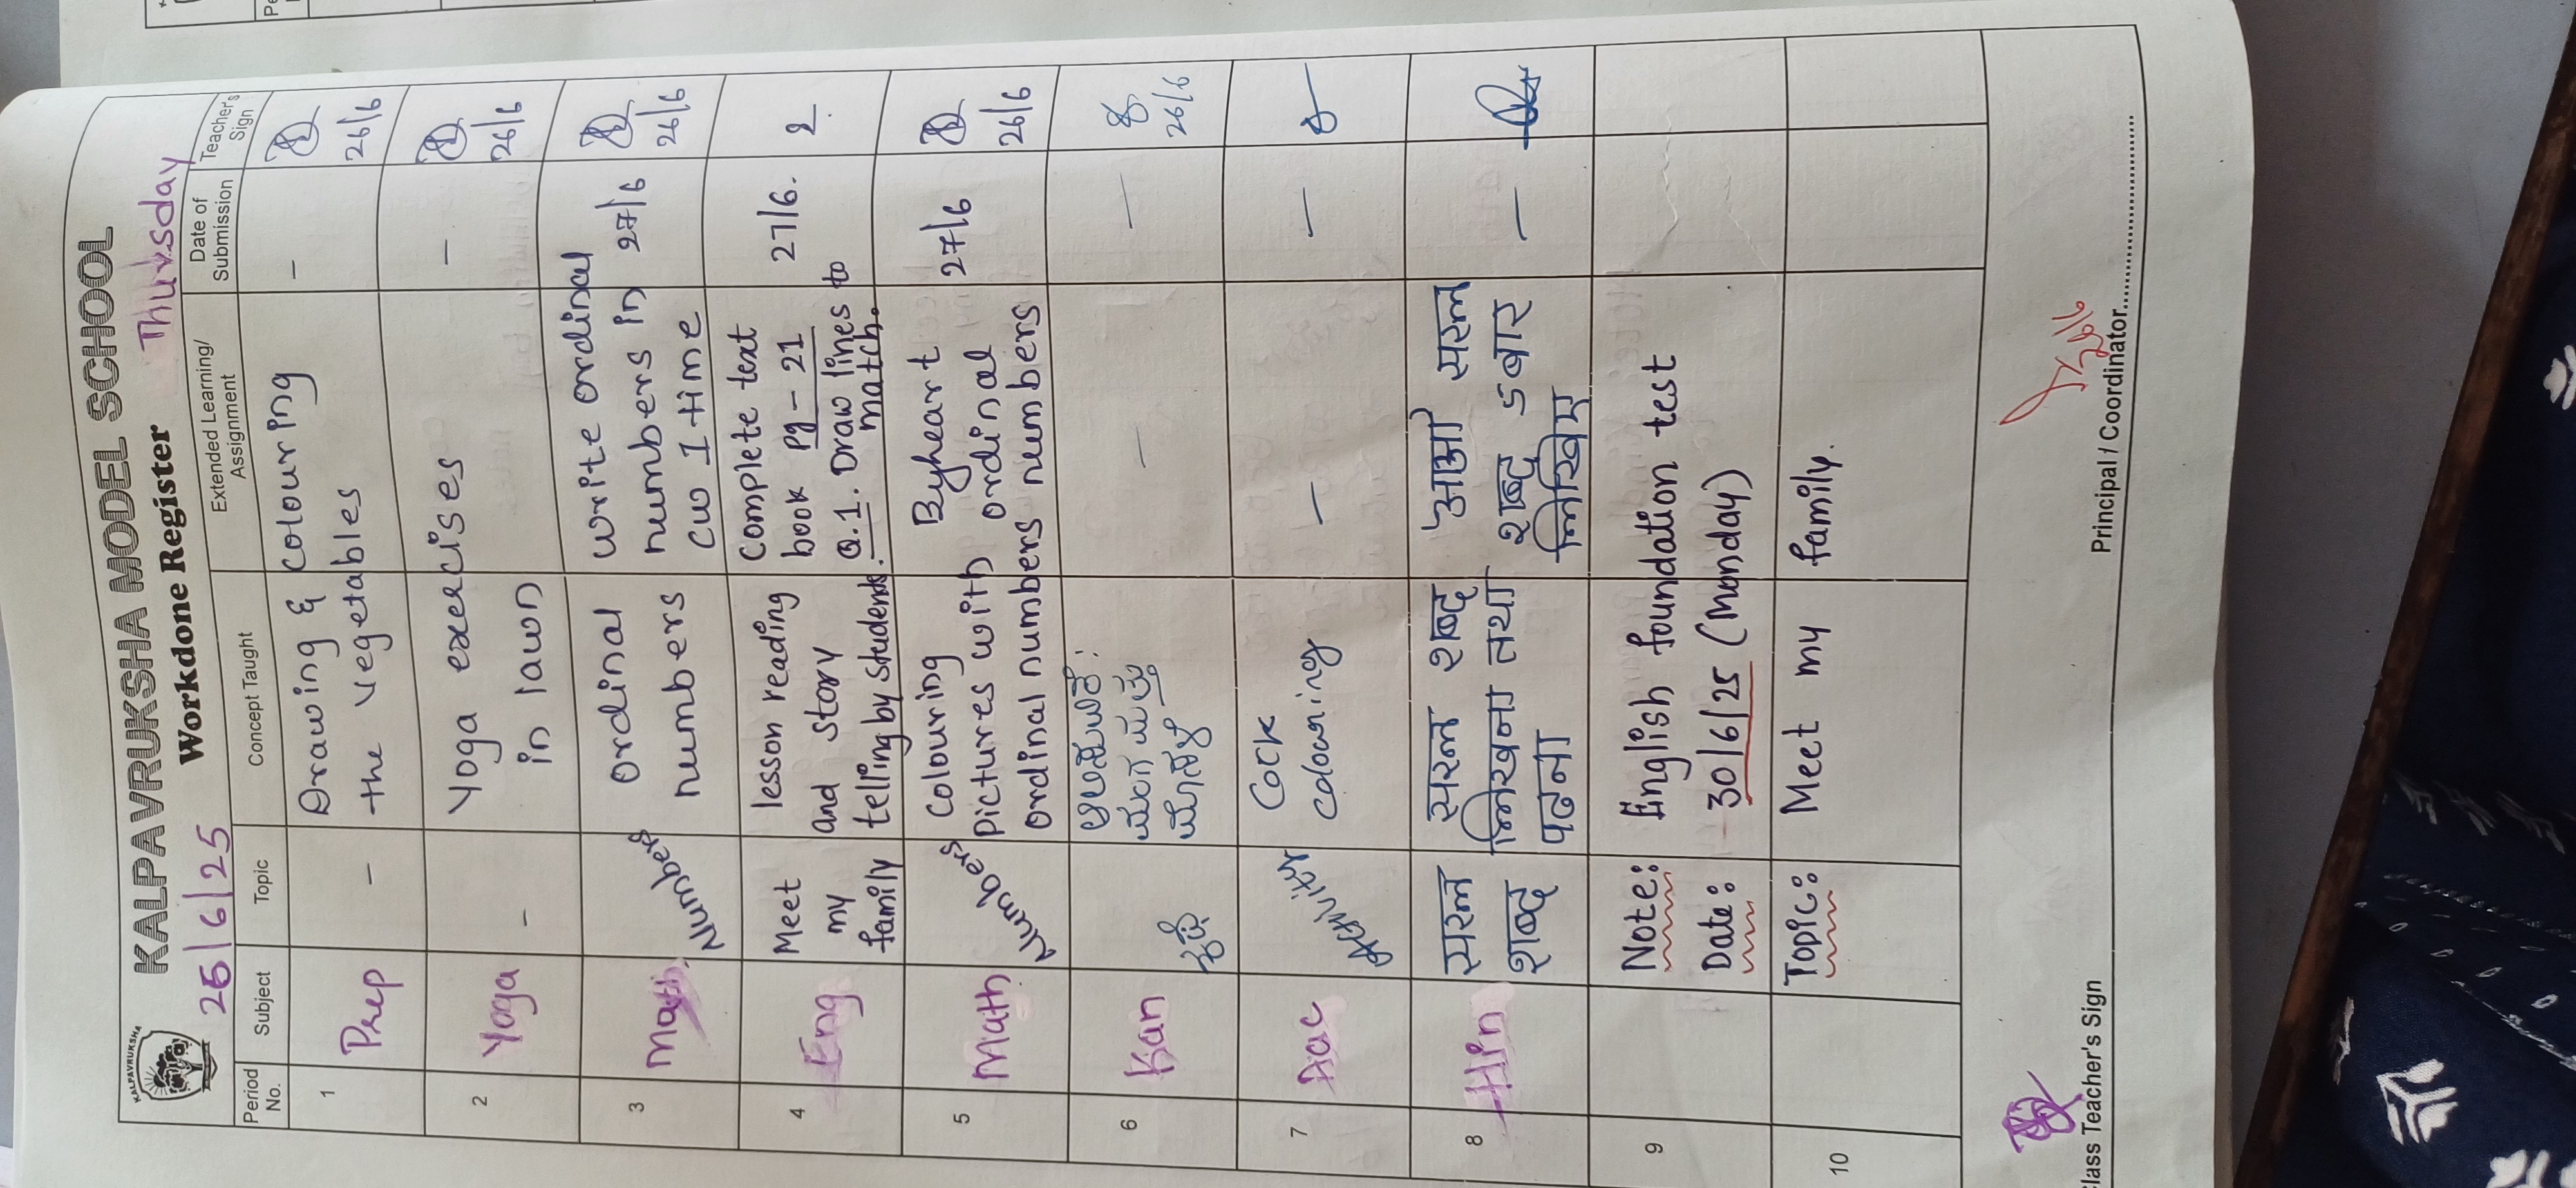 KALPAVRUKSHA
KALPAVRUKSHA MODEL SCHOOL
Workdone Register
26/6/25
Thursday
Period No.
Subject
Topic
Concept Taught
Extended Learning/ Assignment
Date of Submission
Teacher's Sign
1
Prep
–
Drawing & colouring
the vegetables
–
26/6
2
Yoga
–
Yoga exercises
in lawn
–
26/6
3
Math
Numbers
Ordinal
numbers
write ordinal
numbers in
CW 1 time
27/6
26/6
4
Eng
Meet
my
family
lesson reading
and story
telling by students.
Complete text
book Pg – 21
Q.1. Draw lines to
match.
27/6.
5
Math
Numbers
Colouring
Pictures with
ordinal numbers
Byheart
ordinal
numbers
27/6
26/6
6
Kan
ಮಂಗ ಮತ್ತು
–
–
26/6
7
Aac
Activity
Cock
colouring
–
–
8
Hin
सरल
शब्द
सरल शब्द
लिखना तथा
पढना
आओ सरल
शब्द 5 बार
लिखिए
–
9
Note: English foundation test
Date: 30/6/25 (Monday)
10
Topic: Meet my family.
26/6
Class Teacher's Sign
Principal / Coordinator